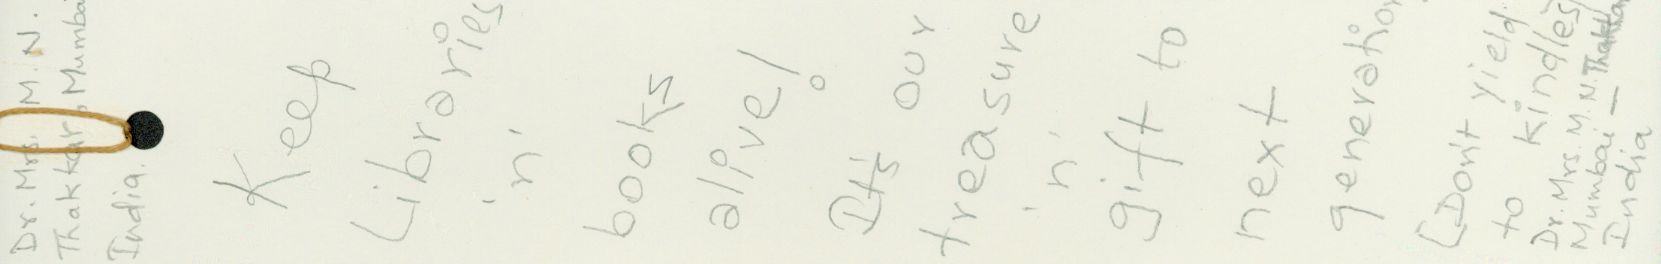 Dr. Mrs. M. N.
Thakkar, Mumbai
India.
Keep
Libraries
'n'
books
alive!
Its our
treasure
'n'
gift to
next
generation
[Dont yield
to Kindles]
Dr. Mrs. M. N. Thakkar
Mumbai -
India